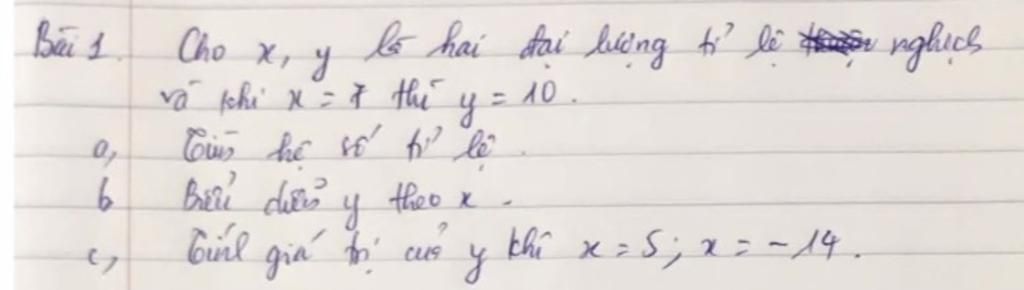 Bài 1. Cho x, y là hai đại lượng tỉ lệ nghịch
và khi x = 7 thì y = 10.
a, Tìm hệ số tỉ lệ.
b Biểu diễn y theo x.
c, Tính giá trị của y khi x = 5; x = -14.